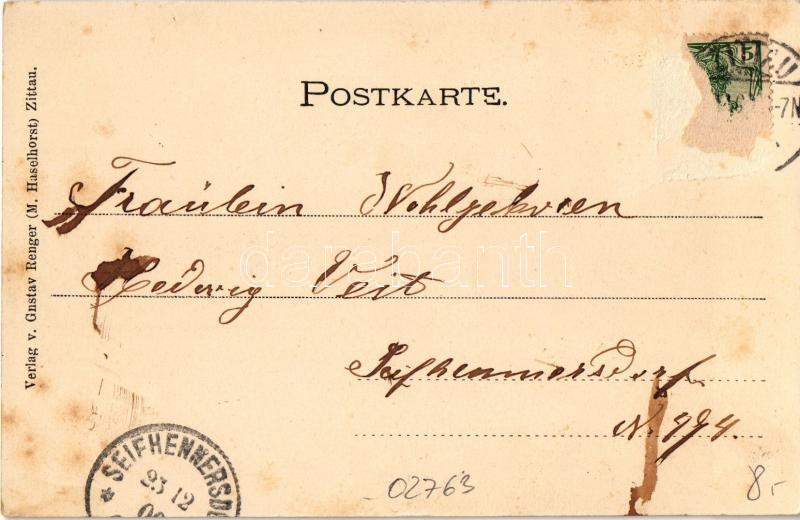 POSTKARTE.
5
-7N
Fräulein Wohlgeboren
Hedwig Veit
Seifhennersdorf
N. 294.
Verlag v. Gustav Renger (M. Haselhorst) Zittau.
* SEIFHENNERSDO
23 12
02763
8,-
darabanth